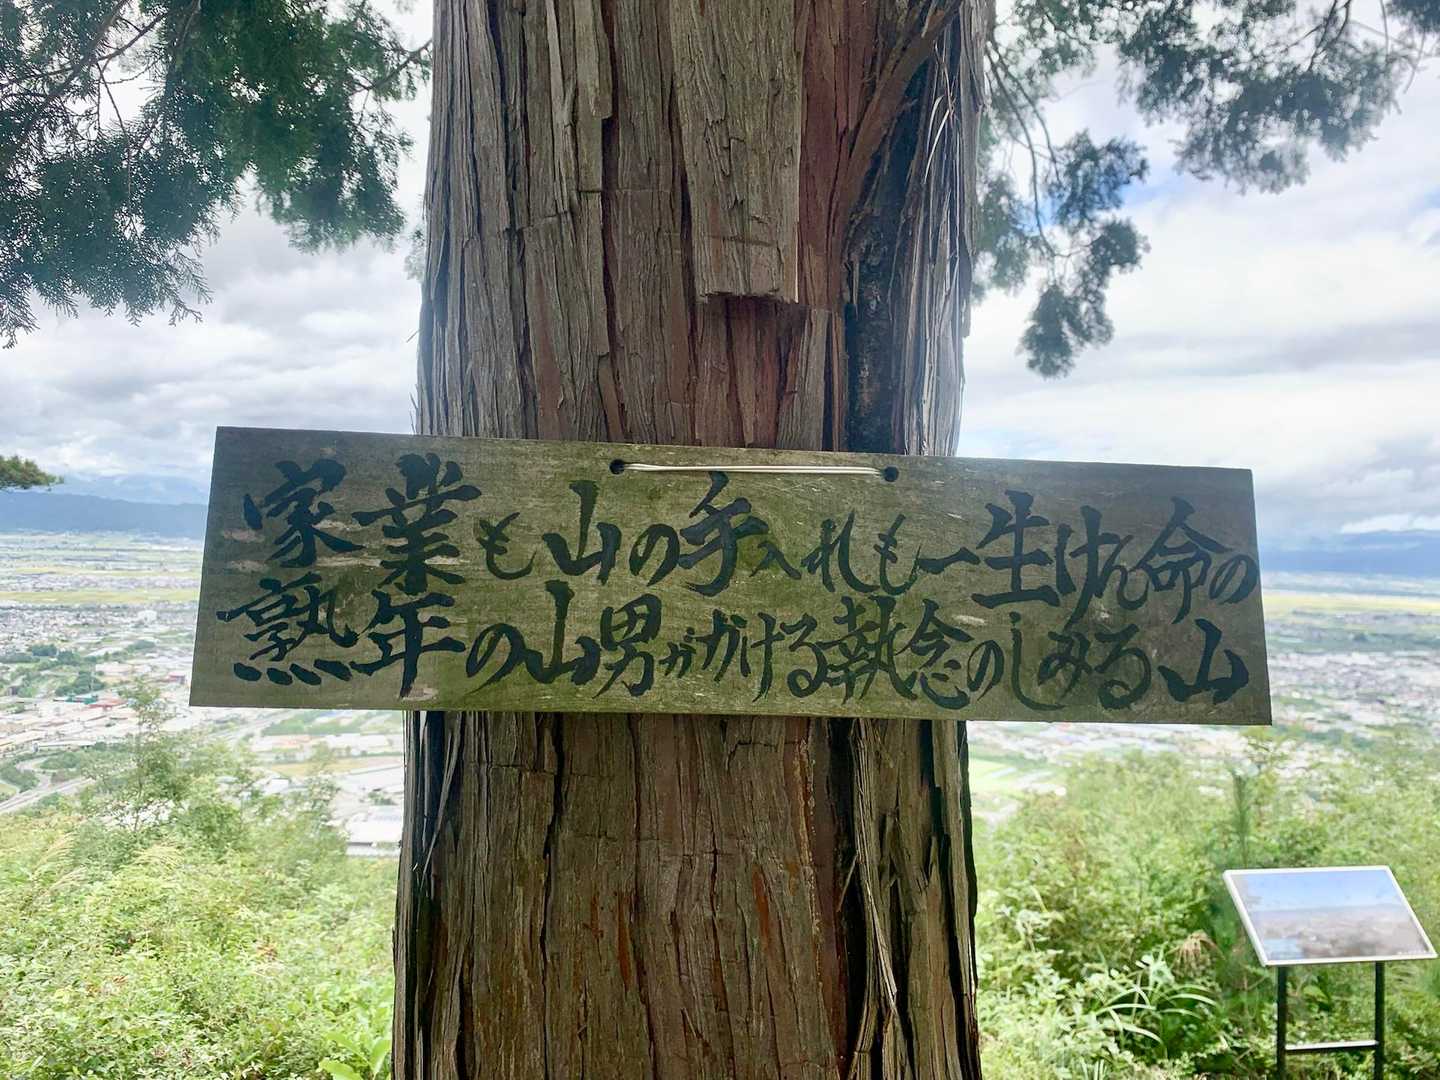 家業も山の手入れも一生けん命の
熟年の山男がかける執念のしみる山